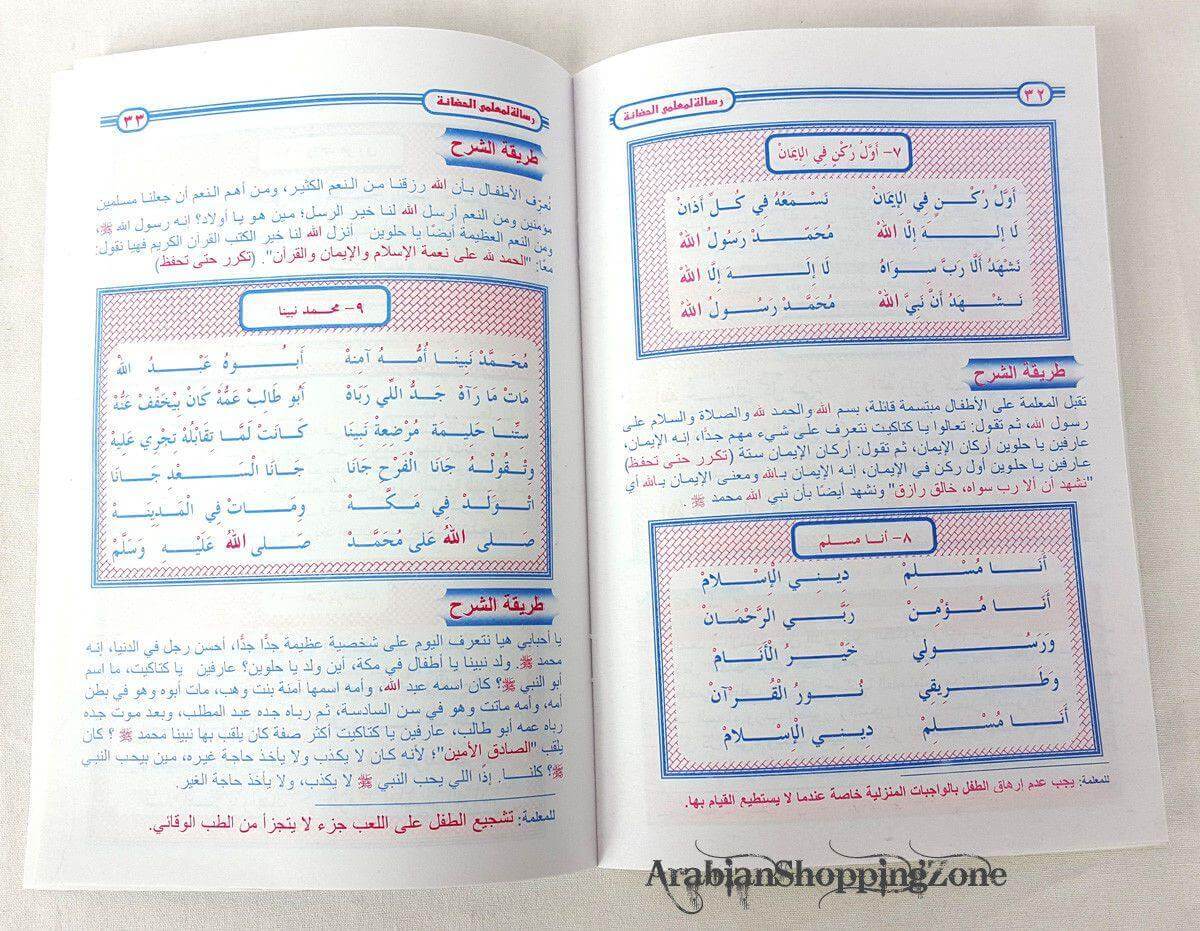 رسالة لمعلمي الحضانة
٣٢
٧- أَوَّلُ رُكْنٍ فِي الإِيمَانْ
أَوَّلُ رُكْنٍ فِي الإِيمَانْ نَسْمَعُهُ فِي كُلِّ أَذَانْ
لَا إِلهَ إِلَّا اللهْ مُحَمَّدْ رَسُولُ اللهْ
نَشْهَدُ أَلَّا رَبَّ سِوَاهْ لَا إِلَهَ إِلَّا اللهْ
نَشْهَدُ أَنَّ نَبِيَّ اللهْ مُحَمَّدْ رَسُولُ اللهْ
طريقة الشرح
تقبل المعلمة على الأطفال مبتسمة قائلة، بسم الله والحمد لله والصلاة والسلام على
رسول الله، ثم تقول: تعالوا يا كتاكيت نتعرف على شيء مهم جدًا، إنه الإيمان،
عارفين يا حلوين أركان الإيمان، ثم تقول: أركان الإيمان ستة (تكرر حتى تحفظ)
عارفين يا حلوين أول ركن في الإيمان، إنه الإيمان بالله ومعنى الإيمان بالله أي
"نشهد أن ألا رب سواه، خالق رازق" ونشهد أيضًا بأن نبي الله محمد ﷺ .
٨- أنا مسلم
أَنَا مُسْلِمْ دِينِي الْإِسْلَامْ
أَنَا مُؤْمِنْ رَبِّي الرَّحْمَانْ
وَرَسُولِي خَيْرُ الْأَنَامْ
وَطَرِيقِي نُورُ الْقُرْآنْ
أَنَا مُسْلِمْ دِينِي الْإِسْلَامْ
للمعلمة: يجب عدم إرهاق الطفل بالواجبات المنزلية خاصة عندما لا يستطيع القيام بها.
رسالة لمعلمي الحضانة
٣٣
طريقة الشرح
نُعرّف الأطفال بأن الله رزقنا من النعم الكثير، ومن أهم النعم أن جعلنا مسلمين
مؤمنين ومن النعم أرسل الله لنا خير الرسل؛ مين هو يا أولاد؟ انه رسول الله ﷺ،
ومن النعم العظيمة أيضًا يا حلوين أنزل الله لنا خير الكتب القرآن الكريم فهيا نقول
معًا: "الحمد لله على نعمة الإسلام والإيمان والقرآن". (تكرر حتى تحفظ)
٩- محمد نبينا
مُحَمَّدْ نَبِينَا أُمُّهُ آمِنِهْ أَبُوهُ عَبْدُ الله
مَاتْ مَا رَآهْ جَدُّ اللِّي رَبَاهْ أَبُو طَالِبْ عَمُّهْ كَانْ بِيْخَفِّفْ عَنُّهْ
سِتِّنَا حَلِيمَة مُرْضِعِةْ نَبِينَا كَانَتْ لَمَّا تِقَابْلُهْ تِجْرِي عَلِيهْ
وِتْقُولُهْ جَانَا الْفَرَحْ جَانَا جَانَا السَّعْدِ جَانَا
اتْوَلَدْ فِي مَكَّهْ وِمَاتْ فِي الْمَدِينَهْ
صَلى اللهُ عَلى مُحَمَّدْ صَلى اللهُ عَلَيْهِ وَسَلَّمْ
طريقة الشرح
يا أحبابي هيا نتعرف اليوم على شخصية عظيمة جدًّا جدًّا، أحسن رجل في الدنيا، إنه
محمد ﷺ. ولد نبينا يا أطفال في مكة، أين ولد يا حلوين؟ عارفين يا كتاكيت، ما اسم
أبو النبي ﷺ؟ كان اسمه عبد الله، وأمه اسمها آمنة بنت وهب، مات أبوه وهو في بطن
أمه، وأمه ماتت وهو في سن السادسة، ثم رباه جده عبد المطلب، وبعد موت جده
رباه عمه أبو طالب، عارفين يا كتاكيت أكثر صفة كان يلقب بها نبينا محمد ﷺ ؟ كان
يلقب "الصادق الأمين"؛ لأنه كان لا يكذب ولا يأخذ حاجة غيره، مين بيحب النبي
ﷺ؟ كلنا. إذًا اللي يحب النبي ﷺ لا يكذب، ولا يأخذ حاجة الغير.
للمعلمة: تشجيع الطفل على اللعب جزء لا يتجزأ من الطب الوقائي.
ArabianShoppingZone